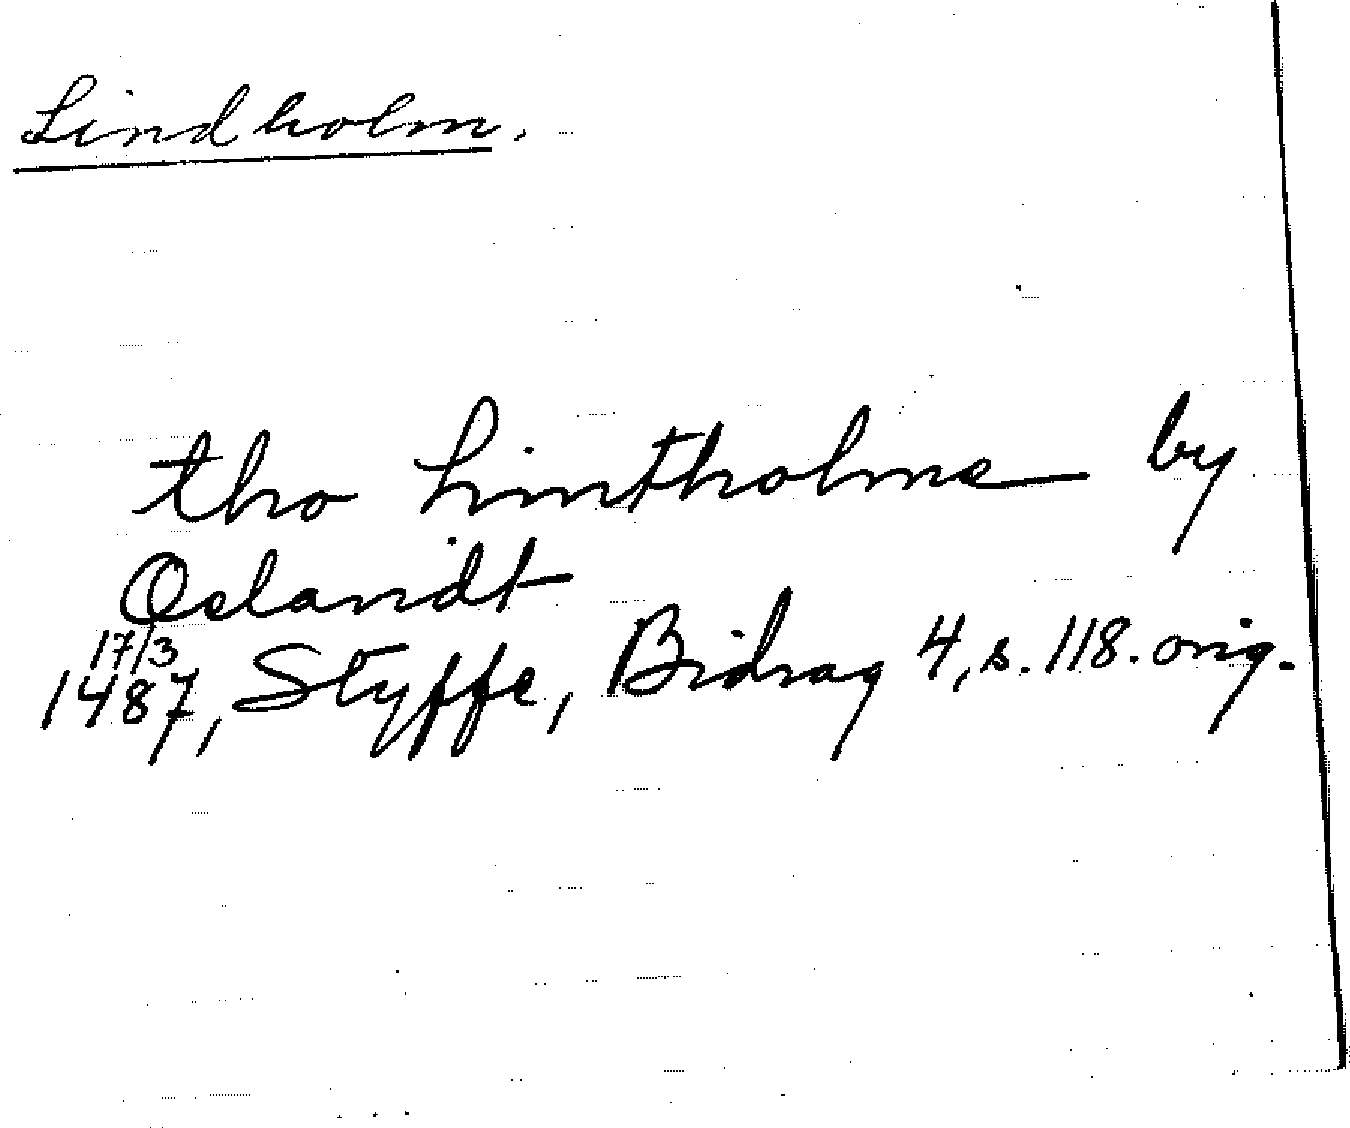 Lindholm.
tho Lintholme by
Oelandt
17/3
1487, Styffe, Bidrag 4, s. 118. orig.